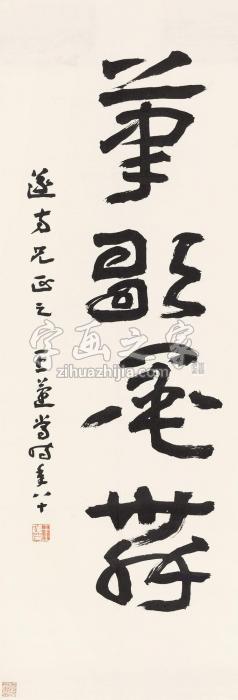 筆歌墨舞
方兄正之 王蘧常时年八十
字画之家
zihuazhijia.com